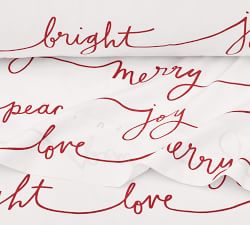 bright j
merry
pear joy
love erry
ht love